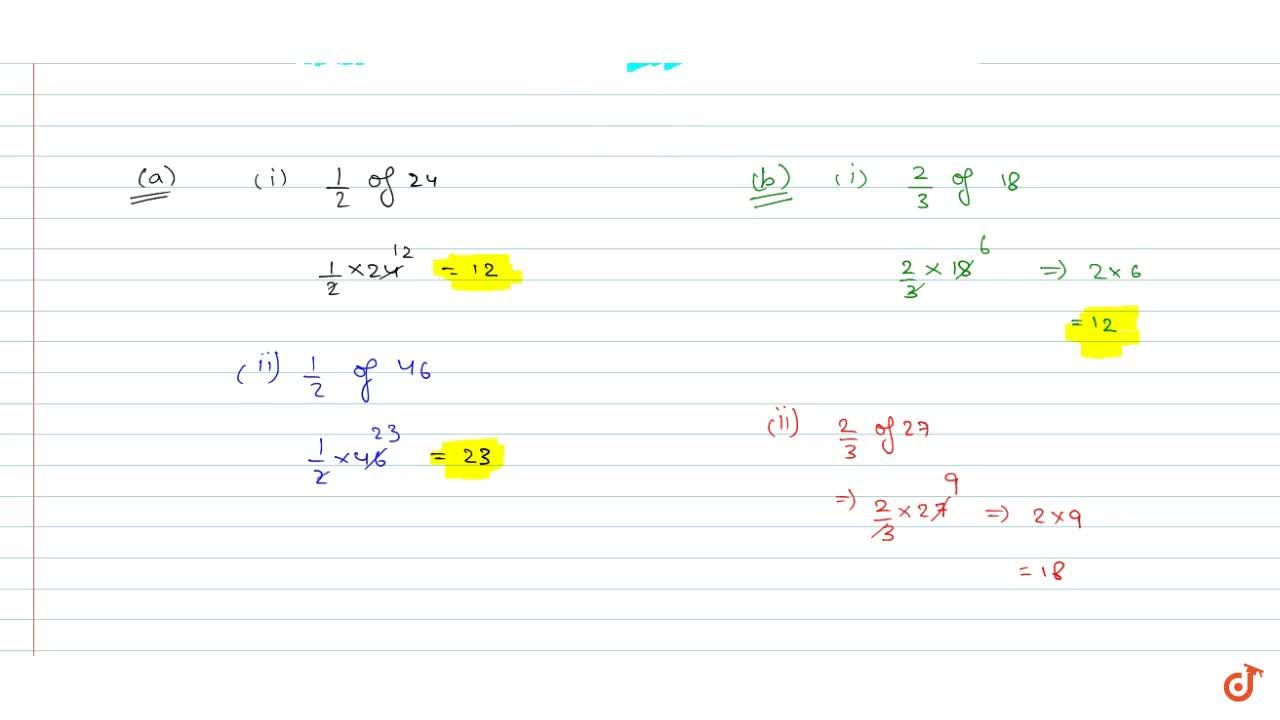 (a) (i) 1/2 of 24
1/2 × 24 12 = 12
(ii) 1/2 of 46
1/2 × 46 23 = 23
(b) (i) 2/3 of 18
2/3 × 18 6 => 2 × 6
= 12
(ii) 2/3 of 27
=> 2/3 × 27 9 => 2 × 9
= 18